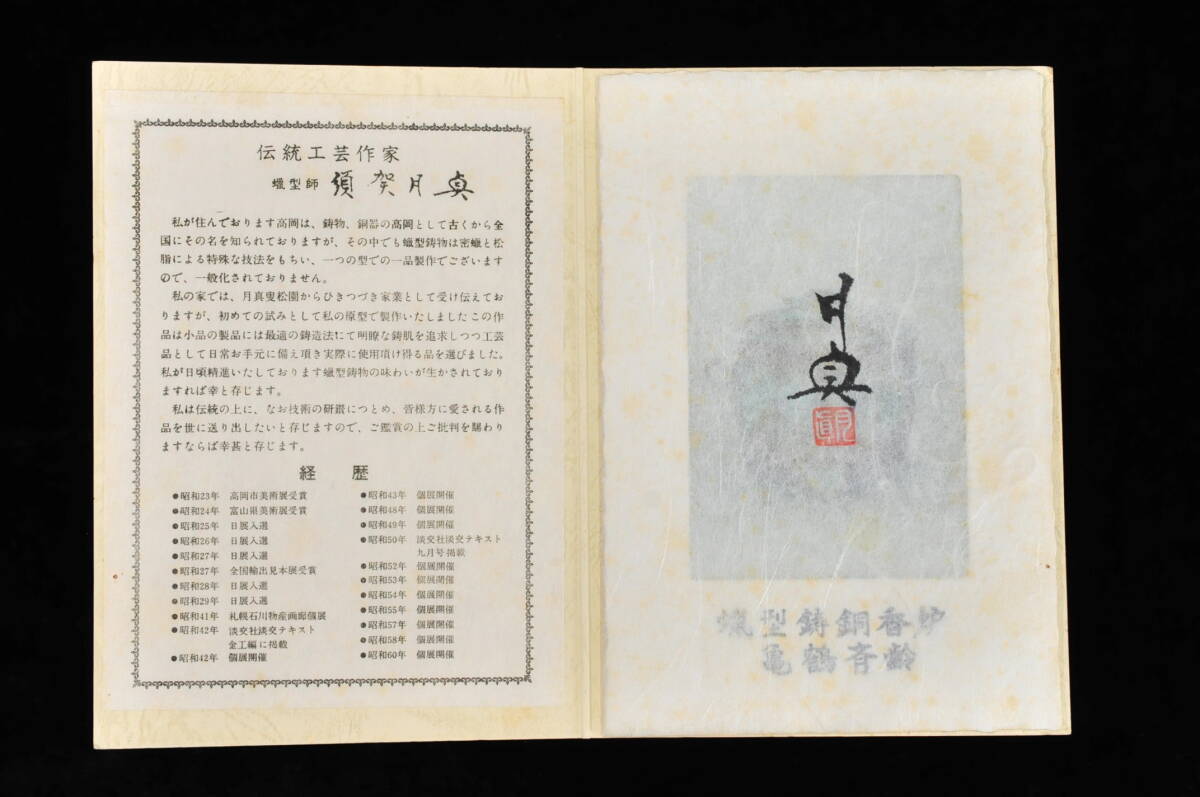 伝統工芸作家
蠟型師 須賀月真
私が住んでおります高岡は、鋳物、銅器の高岡として古くから全
国にその名を知られておりますが、その中でも蠟型鋳物は密蠟と松
脂による特殊な技法をもちい、一つの型での一品製作でございます
ので、一般化されておりません。
私の家では、月真叟松園からひきつづき家業として受け伝えてお
りますが、初めての試みとして私の原型で製作いたしましたこの作
品は小品の製品には最適の鋳造法にて明瞭な鋳肌を追求しつつ工芸
品として日常お手元に備え頂き実際に使用頂け得る品を選びました。
私が日頃精進いたしております蠟型鋳物の味わいが生かされており
ますれば幸と存じます。
私は伝統の上に、なお技術の研鑽につとめ、皆様方に愛される作
品を世に送り出したいと存じますので、ご鑑賞の上ご批判を賜わり
ますならば幸甚と存じます。
経歴
●昭和23年 高岡市美術展受賞
●昭和24年 富山県美術展受賞
●昭和25年 日展入選
●昭和26年 日展入選
●昭和27年 日展入選
●昭和27年 全国輸出見本展受賞
●昭和28年 日展入選
●昭和29年 日展入選
●昭和41年 札幌石川物産画廊個展
●昭和42年 淡交社淡交テキスト
金工編に掲載
●昭和42年 個展開催
●昭和43年 個展開催
●昭和48年 個展開催
●昭和49年 個展開催
●昭和50年 淡交社淡交テキスト
九月号掲載
●昭和52年 個展開催
●昭和53年 個展開催
●昭和54年 個展開催
●昭和55年 個展開催
●昭和57年 個展開催
●昭和58年 個展開催
●昭和60年 個展開催
月真
蠟型鋳銅香炉
亀鶴斉齢